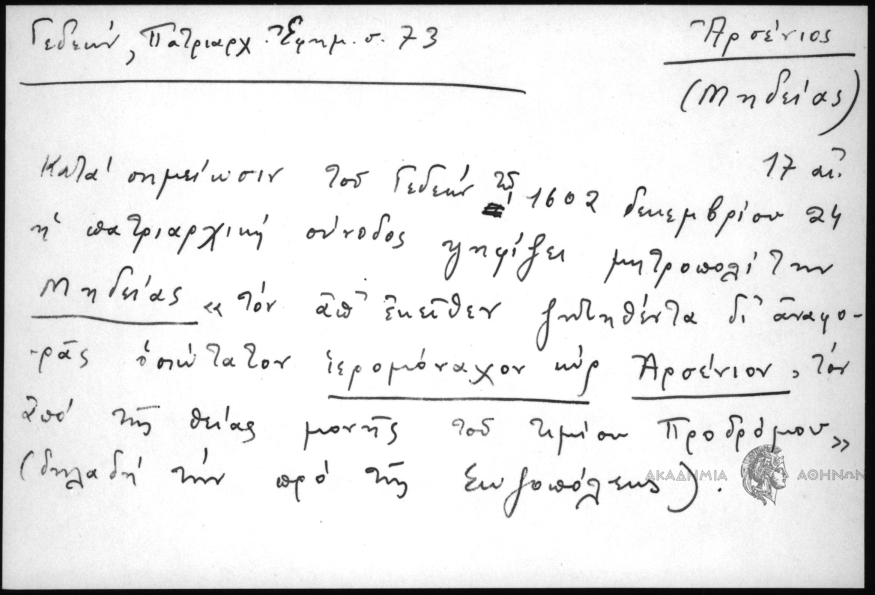 Γεδεών, Πατριαρχ. Ἐφημ. σ. 73
Ἀρσένιος
(Μηδείας)
17 αἰ.
Κατά σημείωσιν τοῦ Γεδεών τῷ 1602 δεκεμβρίου 24
ἡ πατριαρχική σύνοδος ψηφίζει μητροπολίτην
Μηδείας «τόν ἀπ' ἐκεῖθεν ζητηθέντα δι' ἀναφο-
ρᾶς ὁσιώτατον ἱερομόναχον κύρ Ἀρσένιον, τόν
ἀπό τῆς θείας μονῆς τοῦ τιμίου Προδρόμου»
(δηλαδή τήν πρό τῆς Σωζοπόλεως).
ΑΚΑΔΗΜΙΑ ΑΘΗΝΩΝ